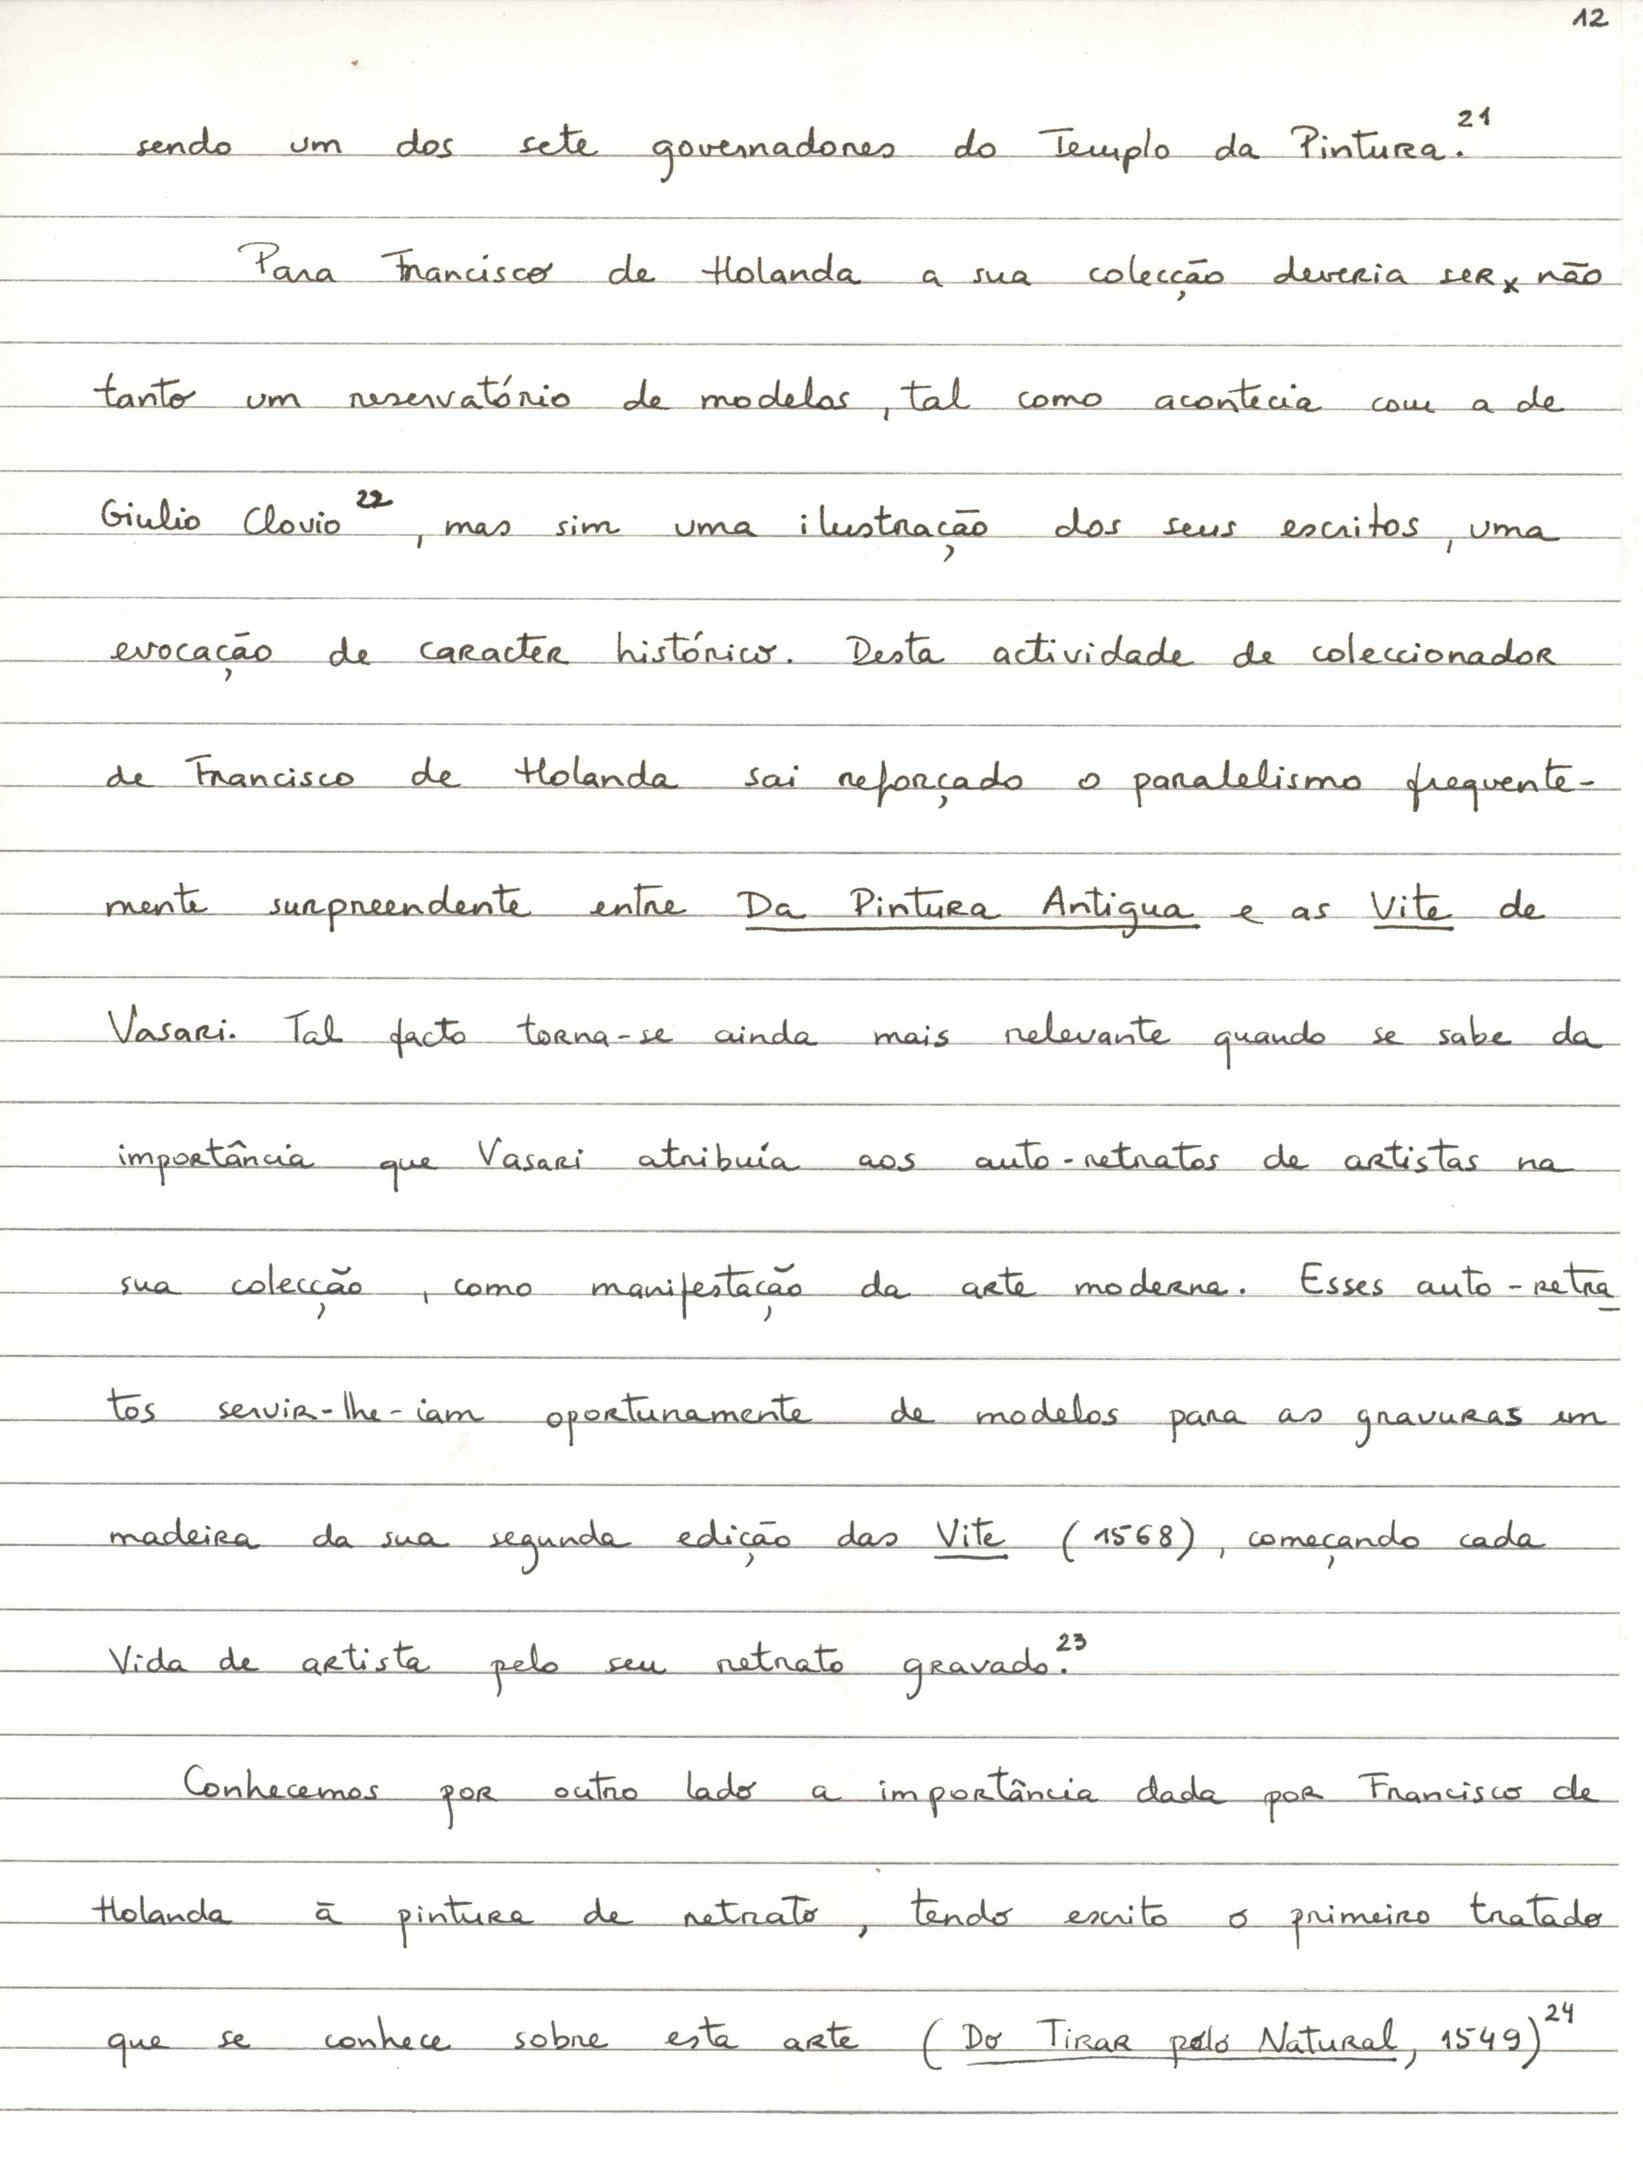 12
sendo um dos sete governadores do Templo da Pintura.²¹
Para Francisco de Holanda a sua colecção deveria ser x não
tanto um reservatório de modelos, tal como acontecia com a de
Giulio Clovio²², mas sim uma ilustração dos seus escritos, uma
evocação de caracter histórico. Desta actividade de coleccionador
de Francisco de Holanda sai reforçado o paralelismo frequente-
mente surpreendente entre Da Pintura Antigua e as Vite de
Vasari. Tal facto torna-se ainda mais relevante quando se sabe da
importância que Vasari atribuía aos auto-retratos de artistas na
sua colecção, como manifestação da arte moderna. Esses auto-retra
tos servir-lhe-iam oportunamente de modelos para as gravuras em
madeira da sua segunda edição das Vite (1568), começando cada
Vida de artista pelo seu retrato gravado.²³
Conhecemos por outro lado a importância dada por Francisco de
Holanda à pintura de retrato, tendo escrito o primeiro tratado
que se conhece sobre esta arte (Do Tirar pólo Natural, 1549)²⁴